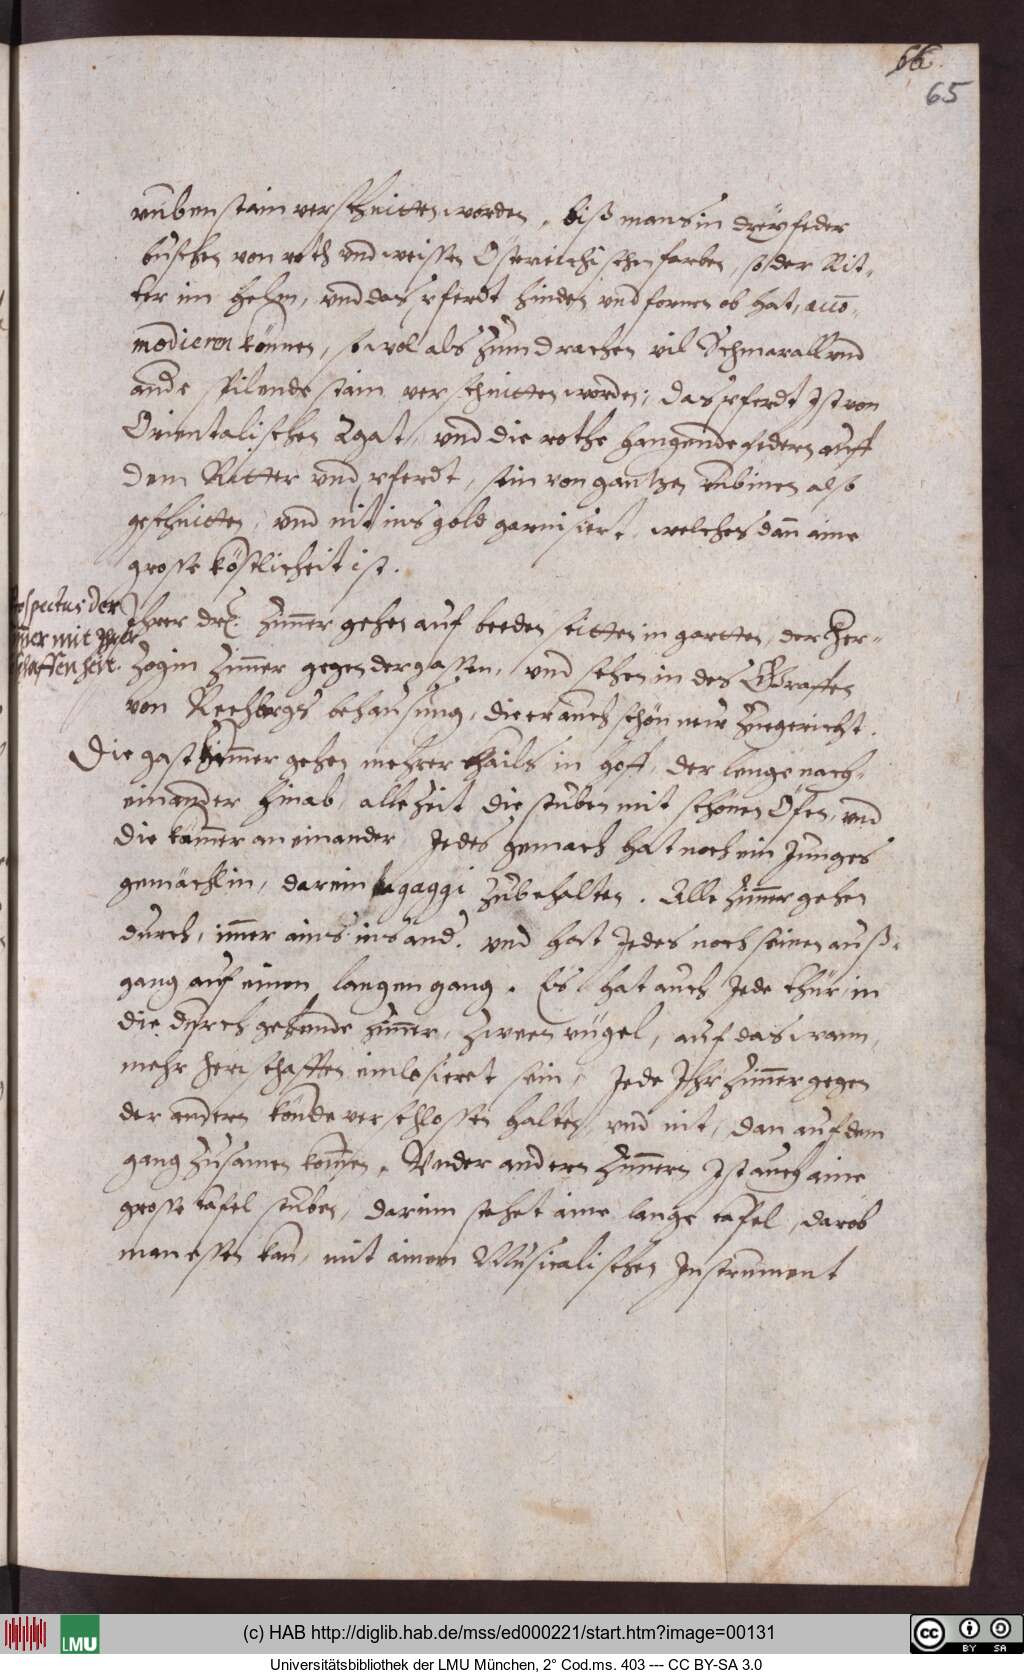 66.
65
rubenstain verschnitten worden, biß mans in dreÿ feder
buschen von roth vnd weissen Östereichischen farben, so der Rit-
ter im helm, vnd das pferdt hinden vnd fornen ob hat, acco-
modieren können, sowol als zum drachen vil Schmarall vnd
ande spilende stain verschnitten worden; das pferdt Ist von
Orientalischen Agat, vnd die rothe hangende federn auff
dem Ritter vnd pferdt, sein von gantzen rubinen also
geschnitten, vnd nit ins gold garnisiert, welches dañ aine
grosse köstlicheit ist.
der
mit
Ihrer Zim̃er gehen auf beeden seitten in gartten, der Her-
zogin Zim̃er gegen der gassen, vnd sehen in des Graffen
von Rechbergs behausung, die er auch schön new zuegericht.
Die gastzim̃er gehen mehrer thails in hoff, der lenge nach-
einander hinab, allezeit die stuben mit schönen Öfen, vnd
die kam̃er an einander Jedes gemach hat noch ein Junges
gemächlin, darein bagaggi zubehalten. Alle Zim̃er gehen
durch, im̃er ains ins and. vnd hat Jedes noch seinen auß-
gang auf einen langen gang. Es hat auch Jede thür, in
die durch gehende zim̃er, zween rügel, auf das wann
mehr herschafften einlosieret sein, Jede Ihr Zim̃er gegen
der andern könde verschlossen halten vnd nit, dan auf dem
gang zusamen kom̃en. Vnder andern Zim̃ern Ist auch aine
grosse tafel stuben, darinn stehet aine lange tafel, darob
man essen kan, mit ainem Musicalischen Instrument
(c) HAB http://diglib.hab.de/mss/ed000221/start.htm?image=00131
LMU
cc BY SA
Universitätsbibliothek der LMU München, 2° Cod.ms. 403 --- CC BY-SA 3.0